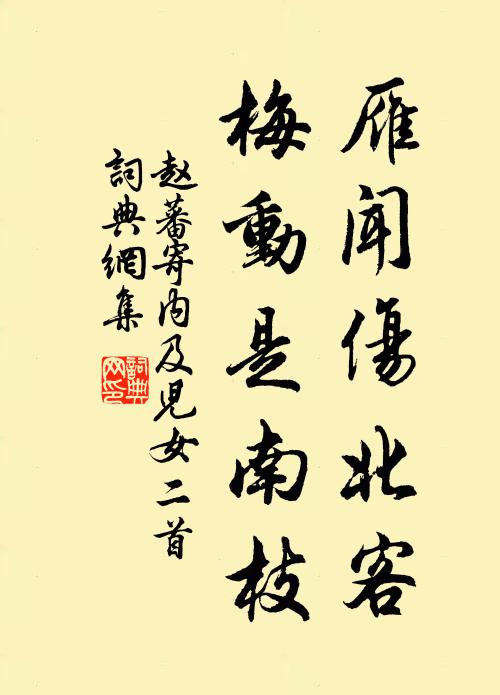 雁聞傷北客
梅動是南枝
赵蕃寄内及児女二首
詞典網集
詞典网印